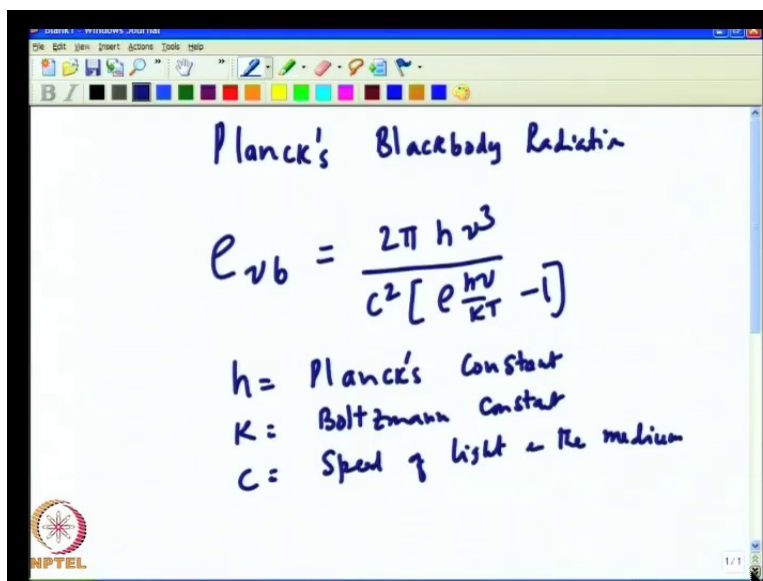 Blank1 - Windows Journal
File Edit View Insert Actions Tools Help
B I
Planck's Blackbody Radiatin
e_νb = 2π h ν^3 / c^2 [ e^(hν/KT) - 1 ]
h = Planck's Constant
K = Boltzmann Constat
C = Speed of light in the medium
NPTEL
1/1